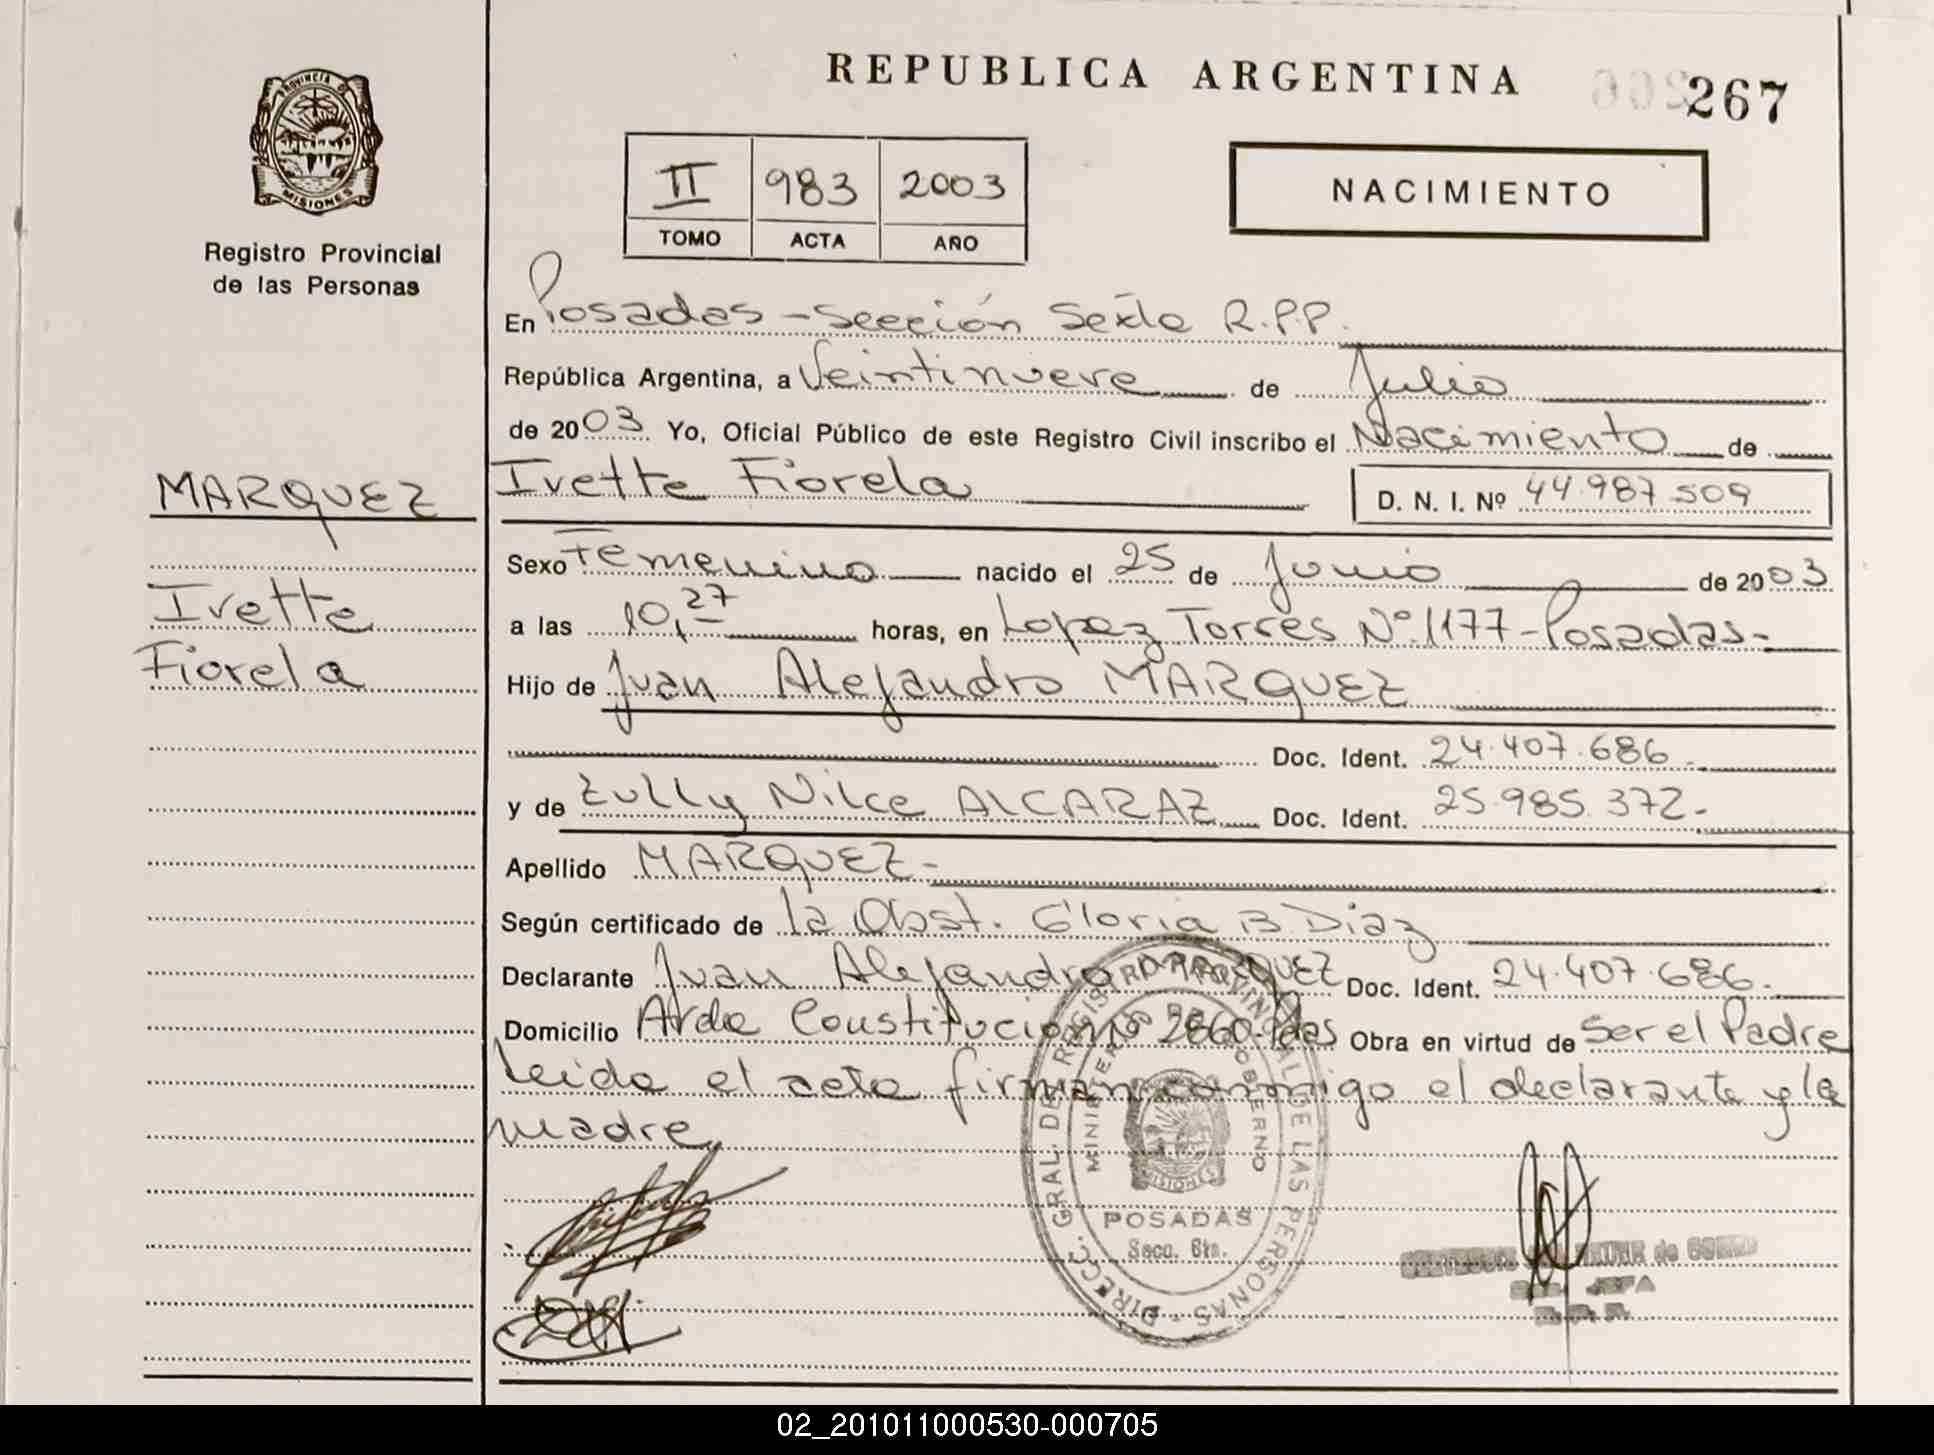 REPUBLICA ARGENTINA
267
PROVINCIA DE
MISIONES
Registro Provincial
de las Personas
II 983 2003
TOMO ACTA AÑO
NACIMIENTO
En Posadas - Sección Sexta R.P.P.
República Argentina, a Veintinueve de Julio
de 2003 Yo, Oficial Público de este Registro Civil inscribo el Nacimiento de
MARQUEZ
Ivette Fiorela
D. N. I. Nº 44.987.509
Ivette
Fiorela
Sexo Femenino nacido el 25 de Junio de 2003
a las 10,27 horas, en Lopez Torres Nº 1177 - Posadas -
Hijo de Juan Alejandro MARQUEZ
Doc. Ident. 24.407.686.
y de Zully Nilce ALCARAZ Doc. Ident. 25.985.372-
Apellido MARQUEZ -
Según certificado de la Obst. Gloria B. Diaz
Declarante Juan Alejandro MARQUEZ Doc. Ident. 24.407.686.
Domicilio Avda Constitucion Nº 2860-Pdas Obra en virtud de Ser el Padre
Leida el acta firman conmigo el declarante y la
madre,
DIRECC. GRAL. DE REGISTRO PROVINCIAL DE LAS PERSONAS
MINISTERIO DE GOBIERNO
MISIONES
POSADAS
Secc. 6ta.
02_201011000530-000705